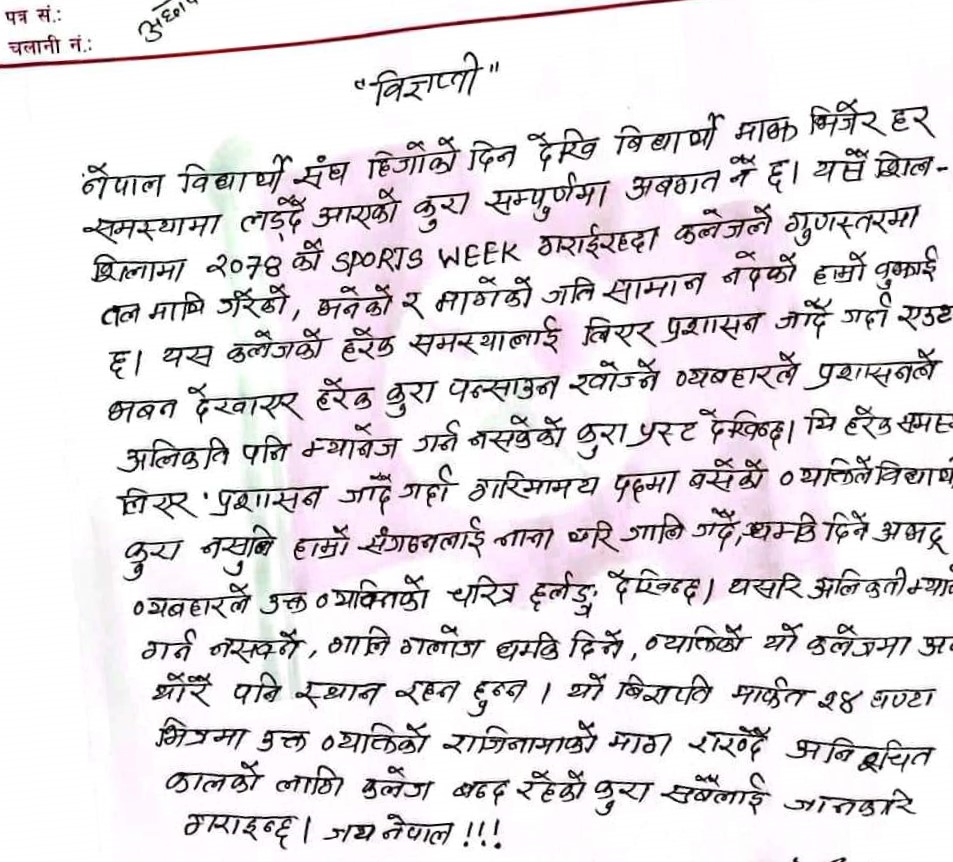 पत्र सं.:
चलानी नं.:
"विज्ञप्ती"
नेपाल विद्यार्थी संघ हिजोको दिन देखि विद्यार्थी माझ भिजेर हर
समस्यामा लड्दै आएको कुरा सम्पुर्णमा अबगत नै छ। यसै शिल-
शिलामा २०७८ को SPORTS WEEK गराईरहदा कलेजले गुणस्तरमा
तल माथि गरेको, भनेको र मागेको जति सामान नदेको हाम्रो वुझाई
छ। यस कलेजको हरेक समस्यालाई लिएर प्रशासन जाँदै गर्दा एउटा
भबन देखाएर हरेक कुरा पन्साउन खोज्ने व्यबहारले प्रशासनले
अलिकति पनि म्यानेज गर्न नसकेको कुरा प्रस्ट देखिन्छ। यि हरेक समस्
लिएर प्रशासन जाँदै गर्दा गारिमामय पदमा बसेको व्यक्तिले विद्यार्थी
कुरा नसुनि हाम्रो संगठनलाई नाना थरि गालि गर्दै, धम्कि दिने अभद्र
व्यबहारले उक्त व्यक्तिको चरित्र छर्लङ्ग देखिन्छ। यसरि अलिकती म्याने
गर्न नसक्ने, गालि गलौज धमकि दिने, व्यक्तिको यो कलेजमा अ
थोरै पनि स्थान रहन हुन्न । यो बिज्ञप्ति मार्फत २४ घण्टा
भित्रमा उक्त व्यक्तिको राजिनामाको माग राख्दै अनिश्चित
कालको लागि कलेज बन्द रहेको कुरा सबैलाई जानकारि
गराइन्छ। जय नेपाल !!!